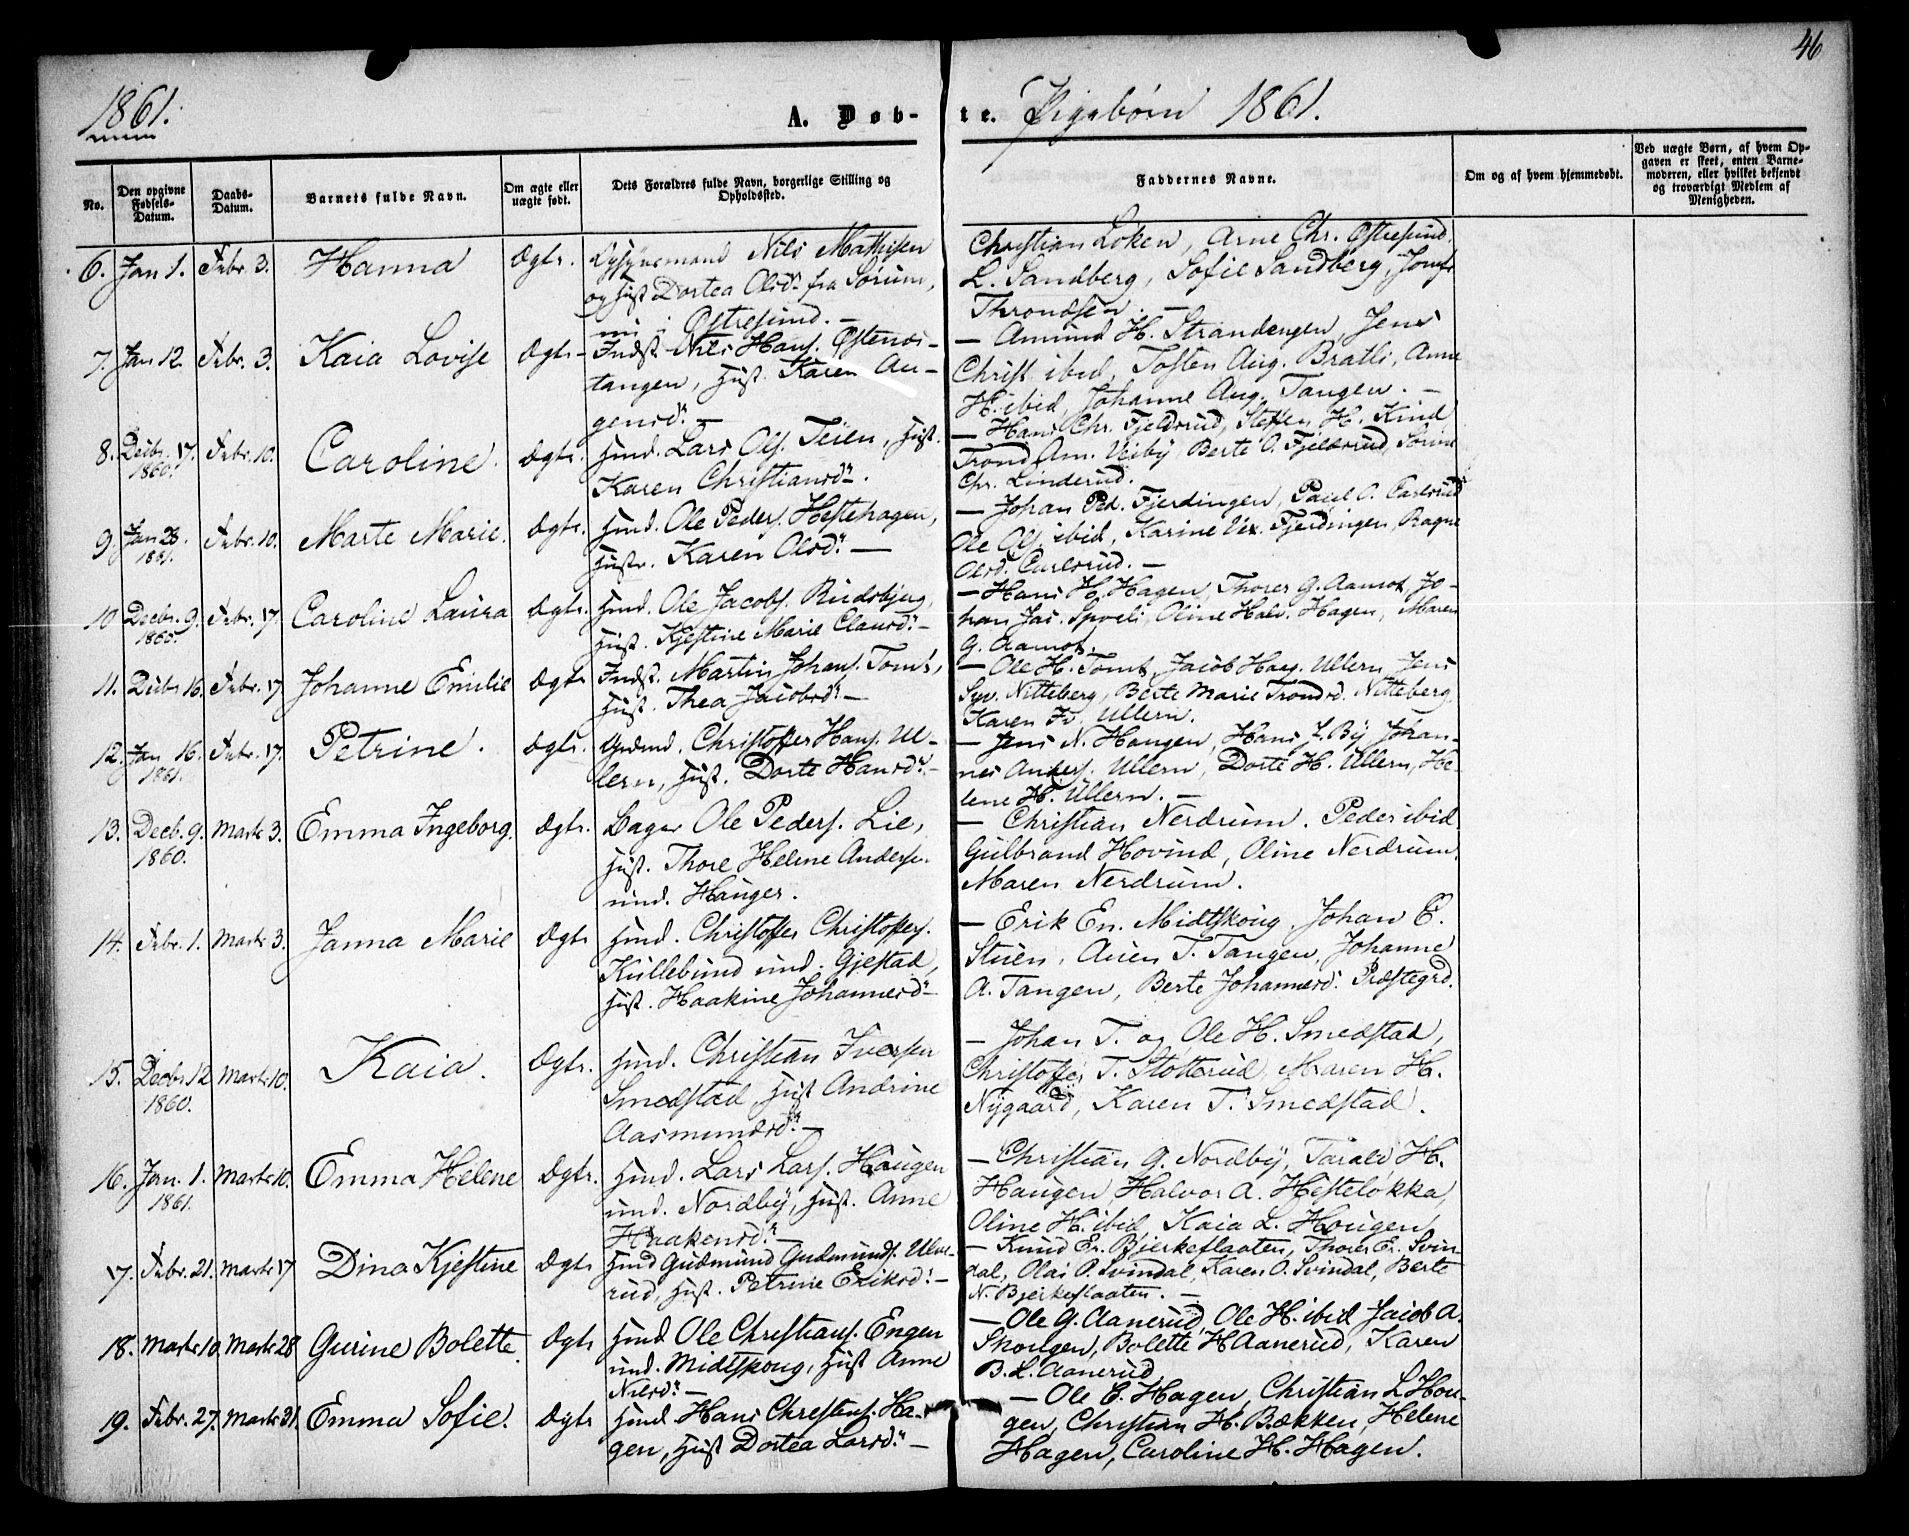 46
1861.
A. Døb-
te. Pigebørn 1861.
No.
Den opgivne Fødsels-Datum.
Daabs-Datum.
Barnets fulde Navn.
Om ægte eller uægte født.
Dets Forældres fulde Navn, borgerlige Stilling og Opholdssted.
Faddernes Navne.
Om og af hvem hjemmedøbt.
Ved uægte Børn, af hvem Opgaven er skeet, enten Barnemoderen, eller hvilket bekjendt og troværdigt Medlem af Menigheden.
6. Jan 1. Febr. 3. Hanna Ægte. Nils Mathisen
og Hust. Dortea Olsd. fra Sørum,
nu i Østresund. —
Christian Løken, Arne Chr. Østresund.
L. Sandberg, Sofie Sandberg, Josef
Throndsen. —
7. Jan 12. Febr. 3. Kaia Lovise Ægte — Indst. Nils Hans.
tangen, Hust. Karen Au-
gensd. —
— Amund H. Strandengen, Jens
Christ. ibid, Tosten Aug. Bratli, Anne
H. ibid, Johanne Aug. Tangen. —
8. Decbr. 17. 1860. Febr. 10. Caroline. Ægte. Hmd. Lars Ols. Teien, Hust.
Karen Christiansd.
— Hans Chr. Fjeldsrud, Steffen H. Kind
Trond Am. Veiby Berte O. Fjeldsrud, Sørine
Chr. Linderud.
9. Jan 28. 1861. Febr. 10. Marte Marie. Ægte. Hmd. Ole Peders. Hestehagen,
Hustr. Karen Olsd. —
— Johan Ped. Fjerdingen, Paul O. Carlsrud
Ole Ols. ibid, Karine Fjerdingen, Ragne
Olsd. Carlsrud. —
10 Decbr. 9. 1860. Febr. 17. Caroline Laura Ægte. Hmd. Ole Jacobs. Rudsbjerg,
Hust. Kjestine Marie Clausd. —
— Hans H. Hagen, Thorer G. Aamot, Jo-
han Jac. Spveli, Oline Halv. Hagen, Maren
G. Aamot.
11. Decbr 16. Febr. 17 Johanne Emilie Ægte Indst. Martin Johans. Tomt,
Hust. Thea Jacobsd. —
— Ole H. Tomt, Jacob Hag. Ullern, Jens
Syv. Nitteberg, Berte Marie Trondsd. Nitteberg
Karen Iv. Ullern.
12. Jan 16. 1861. Febr. 17. Petrine. Ægte. Grdmd. Christoffer Hans. Ul-
lern, Hust. Dorte Hansd. —
— Jens N. Haugen, Hans J. By Johan-
nes Anders. Ullern, Dorte H. Ullern, He-
lene H. Ullern. —
13. Decb. 9. 1860. Marts 3. Emma Ingeborg. Ægte. Bager Ole Peders. Lie,
Hust. Thore Helene Anders.
und. Hauger.
— Christian Nerdrum. Peder ibid
Gulbrand Hovind, Oline Nerdrum.
Maren Nerdrum.
14. Febr. 1. Marts 3. Janna Marie Ægte Hmd. Christoffer Christoffers.
Kullebund und. Gjestad,
Hust. Haakine Johannesd. —
— Erik En. Midtskoug. Johan E.
Stuen, Auen T. Tangen, Johanne
A. Tangen, Berte Johannesd. Præstegrd.
15. Decbr 12 1860. Marts 10. Kaia. Ægte. Hmd. Christian Iversen
Smedstad, Hust Andrine
Aasmundsd. —
— Johan T. og Ole H. Smedstad,
Christoffer T. Stotterud, Maren H.
Nygaard, Karen T. Smedstad.
16. Jan. 1. 1861. Marts 10. Emma Helene Ægte. Hmd. Lars Lars. Haugen
und. Nordby, Hust. Anne
Haakensd. —
— Christian G. Nordby, Tarald H.
Haugen, Halvor A. Hesteløkka,
Oline H. ibid, Kaia L. Hougen
17. Febr. 21. Marts 17 Dina Kjestine Ægte. Hmd Gudmund Gudmunds. Ulve-
rud, Hust. Petrine Eriksd. —
— Knud Er. Bjerkeflaaten, Thorer Er. Svin-
dal, Olai P. Svindal, Karen O. Svindal, Berte
N. Bjerkeflaaten. —
18. Marts 10. Marts 28 Gurine Bolette. Ægte Hmd Ole Christians. Engen
und. Midtskoug, Hust Anne
Nilsd. —
— Ole G. Aanerud, Ole H. ibid Jacob A.
Skougen, Bolette H Aanerud, Karen
B. L. Aanerud
19. Febr. 27. Marts 31. Emma Sofie. Ægte Hmd. Hans Christens. Ha-
gen, Hust Dortea Larsd. —
— Ole C. Hagen, Christian L Hou-
gen, Christian H. Bækken, Helene
Hagen, Caroline H. Hagen.